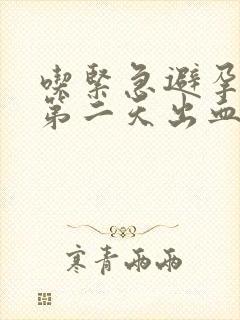 喫緊急避孕
第二天出血
寒青雨雨